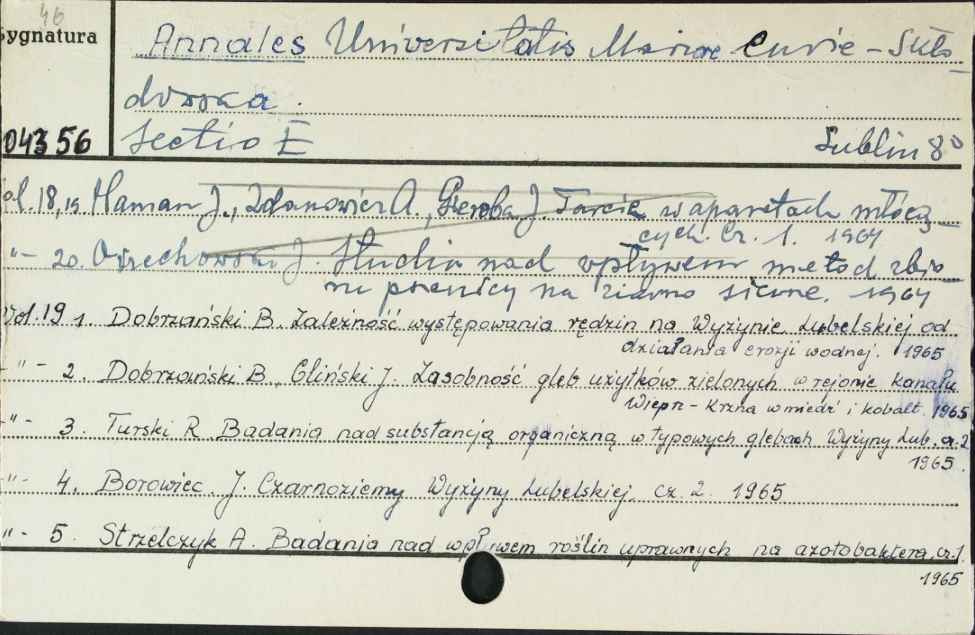 46
Sygnatura
Annales Universitatis Mariae Curie-Skło-
dowska.
04356 Sectio E Lublin 8°
ol. 18, 19 Haman J., Zdanowicz A., Pieroba J Tarcie w aparatach młócą-
cych. Cz. 1. 1964
"- 20. Orzechowski J. Studia nad wpływem metod zbio-
ru pszenicy na ziarno siewne. 1964
Vol. 19 1. Dobrzański B. Zależność występowania rędzin na Wyżynie Lubelskiej od
działania erozji wodnej. 1965
"- 2. Dobrzański B., Gliński J. Zasobność gleb użytków zielonych w rejonie kanału
Wieprz-Krzna w miedź i kobalt. 1965
"- 3. Turski R. Badania nad substancją organiczną w typowych glebach Wyżyny Lub. cz. 2
1965.
"- 4. Borowiec J. Czarnoziemy Wyżyny Lubelskiej cz. 2. 1965
"- 5. Strzelczyk A. Badania nad wpływem roślin uprawnych na azotobaktera. cz. 1
1965